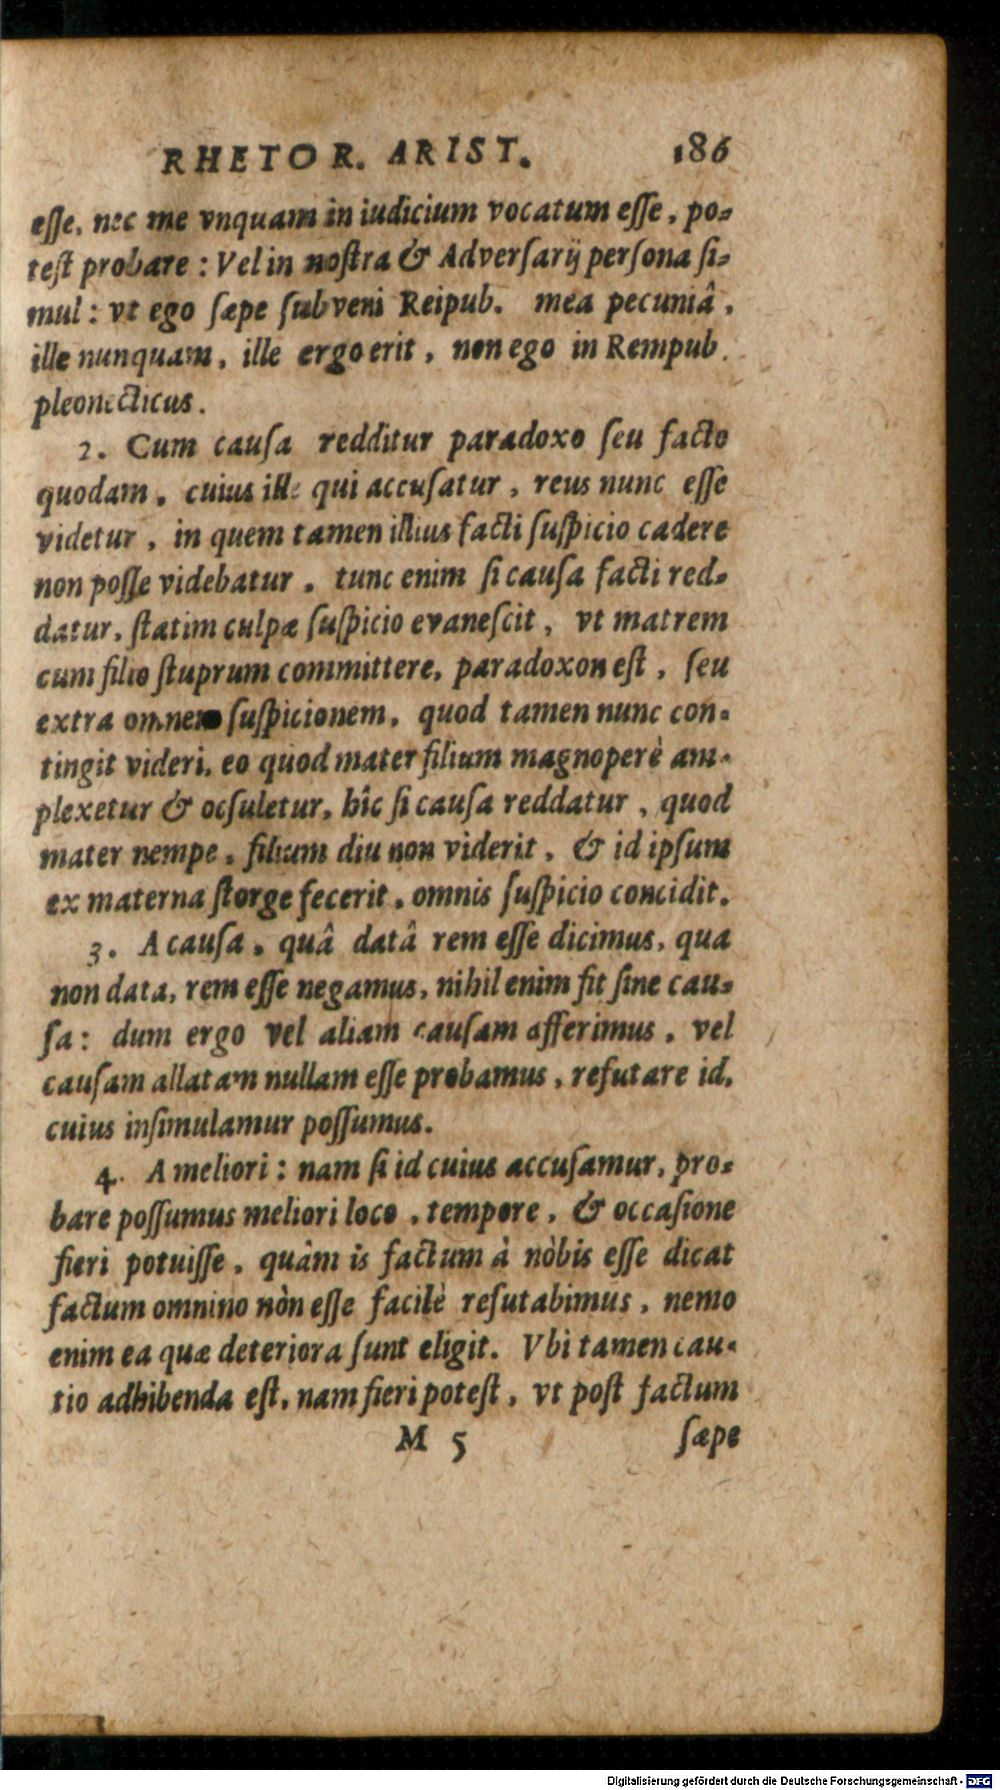 RHETOR. ARIST. 186
eſſe, nec me vnquam in iudicium vocatum eſſe, po-
teſt probare: Vel in noſtra & Adverſarij perſona ſi-
mul: vt ego ſæpe ſubveni Reipub. mea pecuniâ,
ille nunquam, ille ergo erit, non ego in Rempub.
pleonecticus.
2. Cum cauſa redditur paradoxo ſeu facto
quodam, cuius ille qui accuſatur, reus nunc eſſe
videtur, in quem tamen illius facti ſuſpicio cadere
non poſſe videbatur, tunc enim ſi cauſa facti red-
datur, ſtatim culpæ ſuſpicio evaneſcit, vt matrem
cum filio ſtuprum committere, paradoxon eſt, ſeu
extra omnem ſuſpicionem, quod tamen nunc con-
tingit videri, eo quod mater filium magnoperè am-
plexetur & ocſuletur, hîc ſi cauſa reddatur, quod
mater nempe, filium diu non viderit, & id ipſum
ex materna ſtorge fecerit, omnis ſuſpicio concidit.
3. A cauſa, quâ datâ rem eſſe dicimus, qua
non data, rem eſſe negamus, nihil enim fit ſine cau-
ſa: dum ergo vel aliam cauſam afferimus, vel
cauſam allatam nullam eſſe probamus, refutare id,
cuius inſimulamur poſſumus.
4. A meliori: nam ſi id cuius accuſamur, pro-
bare poſſumus meliori loco, tempore, & occaſione
fieri potuiſſe, quàm is factum à nòbis eſſe dicat
factum omnino nòn eſſe facilè refutabimus, nemo
enim ea quæ deteriora ſunt eligit. Vbi tamen cau-
tio adhibenda eſt, nam fieri poteſt, vt poſt factum
M 5 ſæpe
Digitalisierung gefördert durch die Deutsche Forschungsgemeinschaft - DFG